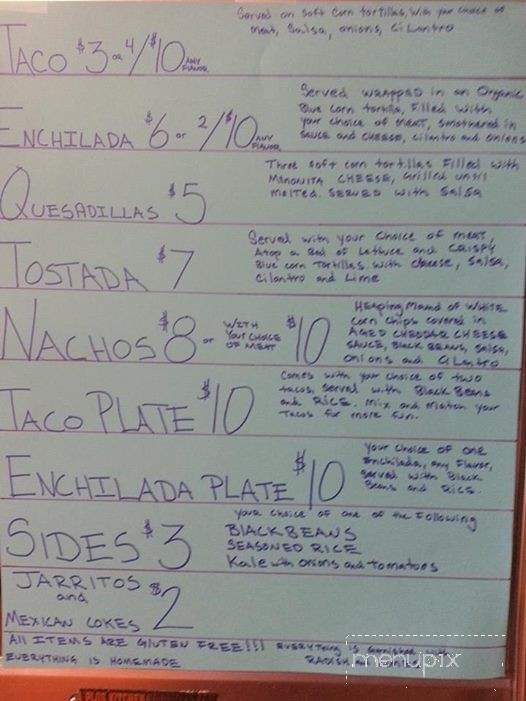 Served on soft corn tortillas, with your choice of
meat, salsa, onions, CiLantro
TACO $3 or 4/$10 ANY FLAVOR
Served WRAPPED in an Organic
Blue corn tortilla, Filled with
your choice of MEAT, smothered in
SAUCE and CHEESE, cilantro and onions
ENCHILADA $6 or 2/$10 ANY FLAVOR
Three soft corn tortillas Filled with
CHEESE, Grilled until
melted. SERVED with SALSA
QUESADILLAS $5
Served with your Choice of meat,
Atop a Bed of Lettuce and CRISPY
Blue corn Tortillas. with cheese, Salsa,
Cilantro and Lime
TOSTADA $7
HEAPING Mound of WHITE
corn chips covered in
AGED CHEDDAR CHEESE
SAUCE, BLACK BEANS, Salsa,
onions and CiLantro
NACHOS $8 or WITH YOUR CHOICE OF MEAT $10
Comes with your choice of two
tacos, Served with Black Beans
and RICE. Mix and match your
Tacos for more fun.
TACO PLATE $10
your choice of one
Enchilada, any Flavor,
Served with Black
Beans and Rice.
ENCHILADA PLATE $10
your choice of one of the Following
SIDES $3
BLACK BEANS
SEASONED RICE
Kale with onions and tomatoes
JARRITOS
and
MEXICAN COKES $2
All ITEMS ARE GLUTEN FREE!!! EVERYTHING is garnished with
EVERYTHING IS HOMEMADE RADISH
menupix